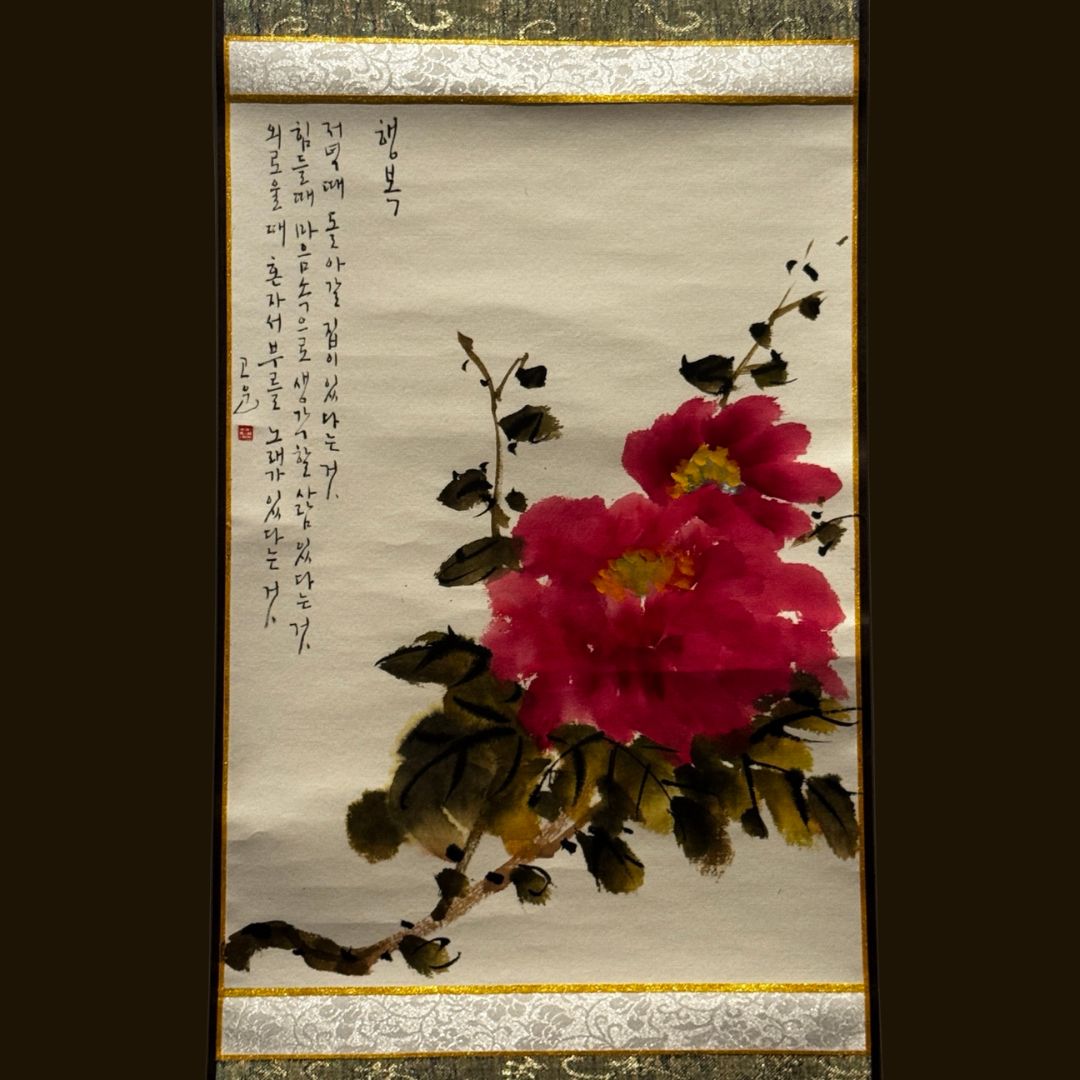 행복
저녁때 돌아갈 집이 있다는 것.
힘들때 마음속으로 생각할 사람 있다는 것.
외로울때 혼자서 부를 노래가 있다는 것.
고운